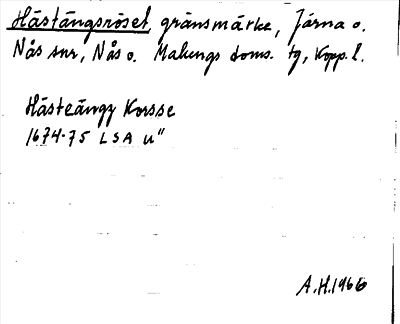 Hästängsröset, gränsmärke, Järna o.
Nås snr, Nås o. Malungs doms. tg, Kopp. l.
Hästeängz Korsse
1674-75 LSA U"
A.H. 1966